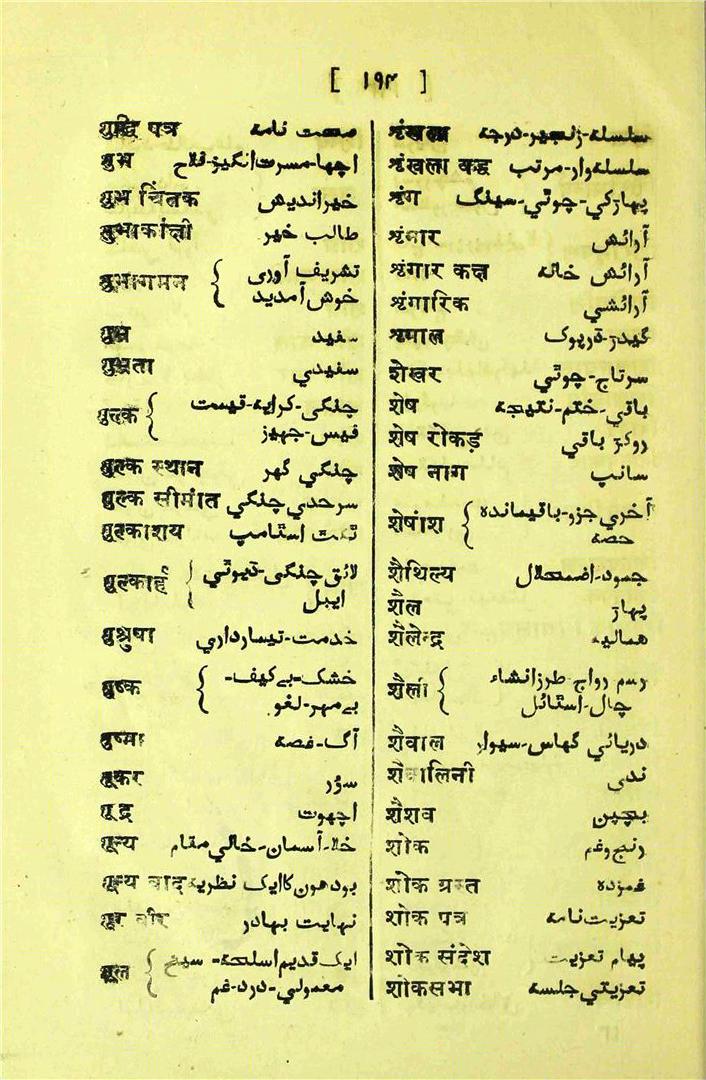 [ ۱۹۴ ]
शुद्धि पत्र صحت نامه
शुभ اچها-مسرت انگیز-فلاح
शुभ चिंतक خیراندیش
शुभाकांक्षी طالب خیر
शुभागमन { تشریف آوری
خوش آمدید
शुभ्र سفید
शुभ्रता سفیدي
शुल्क { چنگی-کرایه-قیمت
فیس-جهیز
शुल्क स्थान چنگي گهر
शुल्क सीमांत سرحدي چنگي
शुल्काशय ٹکٹ اسٹامپ
शुल्कार्ह { لائق چنگی-ڈیوٹي
ایبل
शुश्रुषा خدمت-تیمارداري
शुष्क { خشک-بےکیف-
بےمهر-لغو
शुष्मा آگ-غصه
शूकर سوٗر
शूद्र اچهوت
शून्य خلا-آسمان-خالي مقام
शून्य वाद بودهوں کا ایک نظریه
शूर वीर نهایت بهادر
शूल { ایک قدیم اسلحه- سیخ
معمولي-درد-غم
श्रृंखला سلسله-زنجیر-درجه
श्रृंखला बद्ध سلسله وار-مرتب
श्रृंग پهاڑکي-چوٹي-سینگ
श्रृंगार آرائش
श्रृंगार कक्ष آرائش خانه
श्रृंगारिक آرائشي
श्रृगाल گیدڑ-ڈرپوک
शेखर سرتاج-چوٹي
शेष باقي-ختم-نتیجه
शेष रोकड़ روکڑ باقي
शेष नाग سانپ
शेषांश { آخري جزو-باقیمانده
حصه
शैथिल्य جمود-اضمحلال
शैल پهاڑ
शैलेन्द्र همالیه
शैली { رسم رواج طرز انشاء
چال-اسٹائل
शैवाल دریائي گهاس-سیوار
शैवालिनी ندي
शैशव بچپن
शोक رنج و غم
शोक ग्रस्त غمزده
शोक पत्र تعزیت نامه
शोक संदेश پیام تعزیت
शोकसभा تعزیتي جلسه